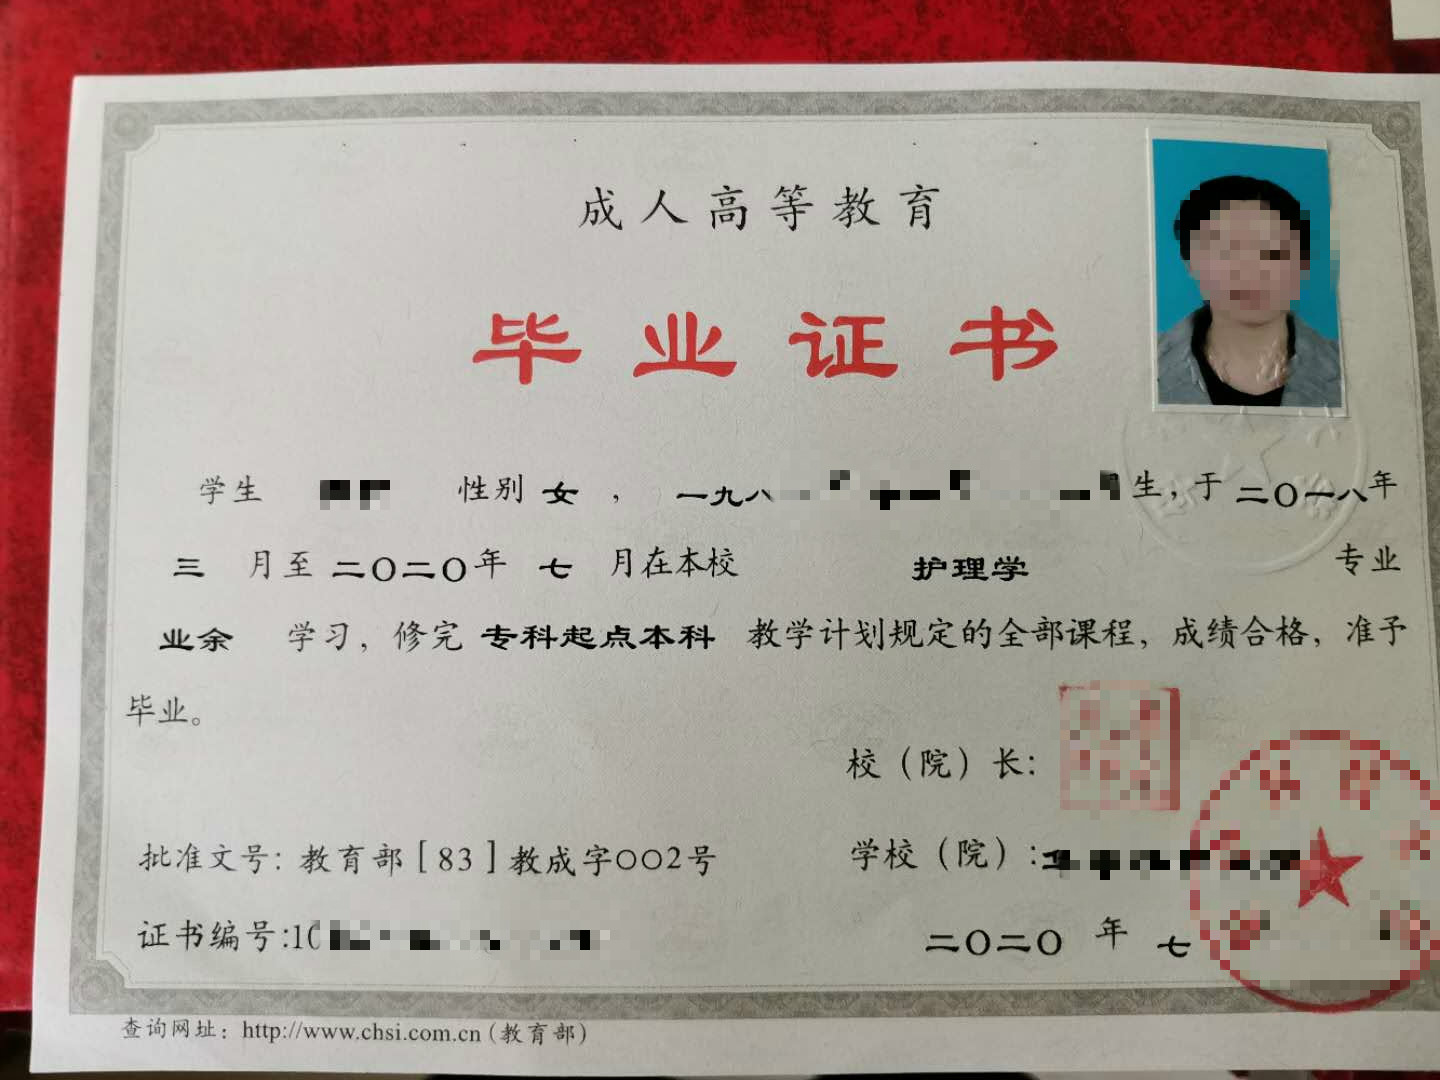 成人高等教育
毕业证书
学生 性别 女， 一九八 生，于 二〇一八年
三 月至 二〇二〇年 七 月在本校 护理学 专业
业余 学习，修完 专科起点本科 教学计划规定的全部课程，成绩合格，准予
毕业。
校（院）长：
批准文号：教育部［83］教成字〇〇2号
学校（院）：
证书编号:10
二〇二〇 年 七
查询网址：http://www.chsi.com.cn（教育部）